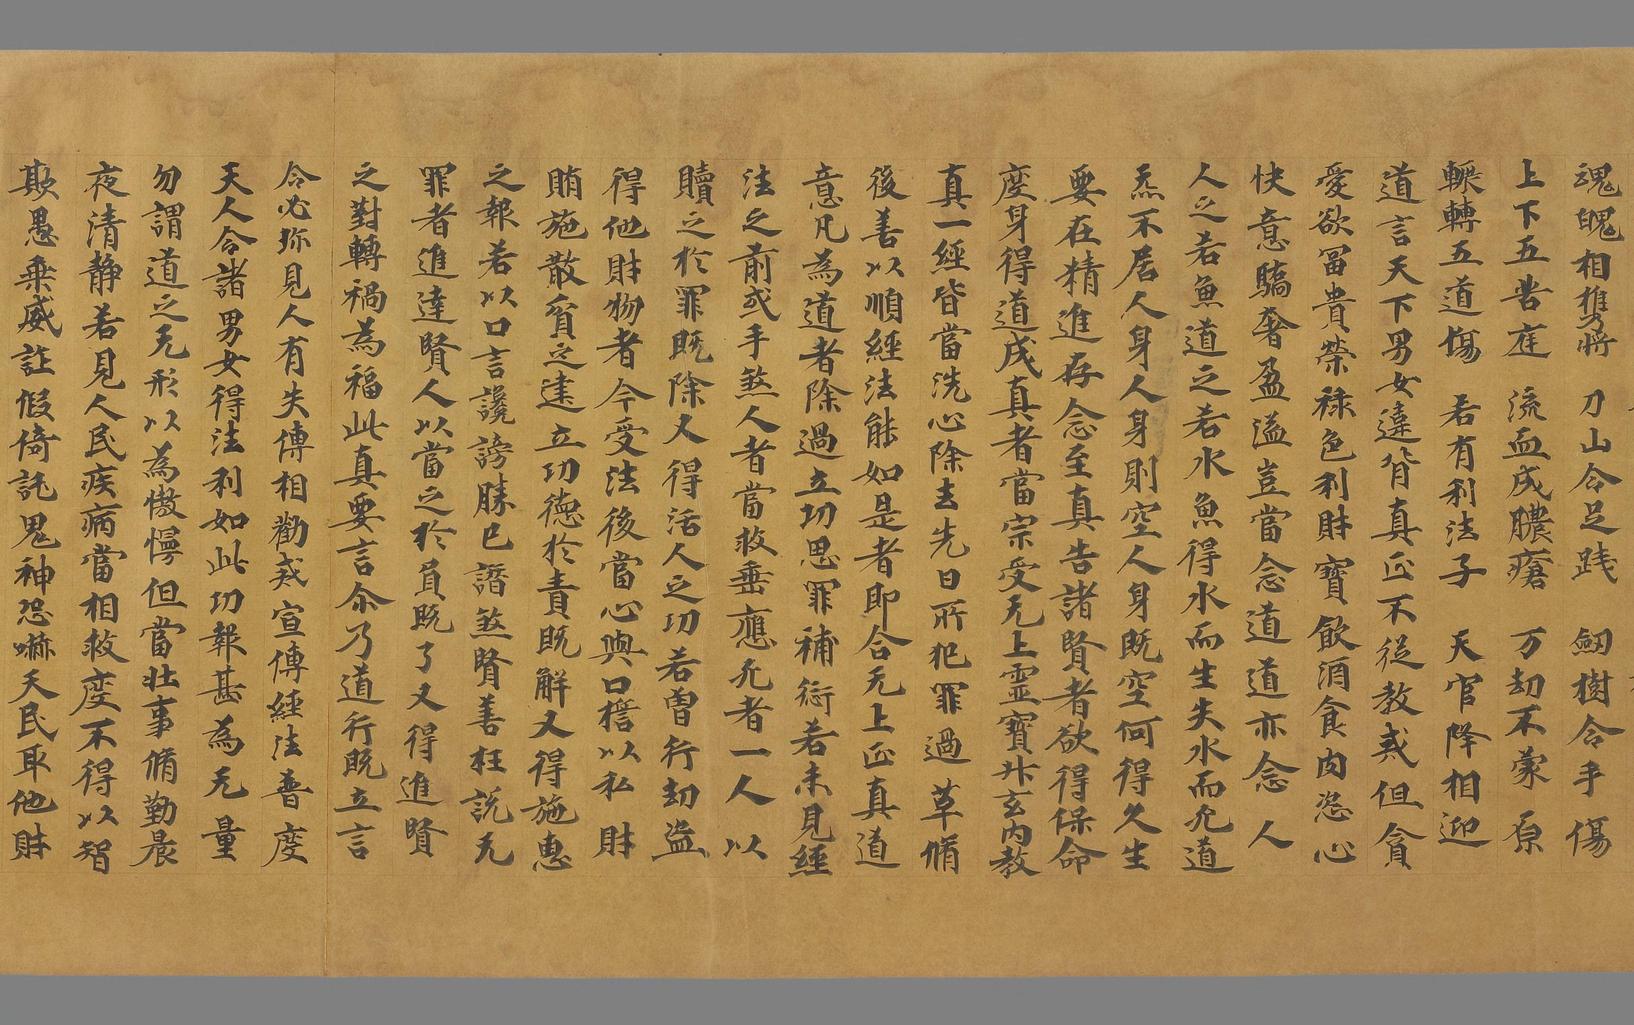 魂魄相携將　刀山令足践　劒樹令手傷
上下五苦庭　流血成膿瘡　万劫不蒙原
輾轉五道傷　若有利法子　天官降相迎
道言天下男女違背真正不從教戒但貪
愛欲冨貴榮禄色利財寶飲酒食肉恣心
快意驕奢盈溢豈當念道道亦念人
人之若魚道之若水魚得水而生失水而死道
炁不居人身人身則空人身既空何得久生
要在精進存念至真告諸賢者欲得保命
度身得道成真者當宗受无上靈寶升玄内教
真一經皆當洗心除去先日所犯罪過草脩
後善以順經法能如是者即合无上正真道
意凡為道者除過立功思罪補愆若未見經
法之前或手煞人者當救垂應死者一人以
贖之於罪既除又得活人之功若曽行劫盗
得他財物者今受法後當心與口誓以私財
賄施散貧乏建立功德於責既解又得施惠
之報若以口言讒謗賺已譖煞賢善枉説无
罪者進達賢人以當之於負既了又得進賢
之對轉禍為福此真要言尒乃道行既立言
令必珎見人有失傅相勸戎宣傳經法普度
天人令諸男女得法利如此功報甚為无量
勿謂道之无形以為憿慢但當壮事脩勤晨
夜清静若見人民疾病當相救度不得以智
欺愚乗威詿假倚託鬼神恐嚇天民取他財